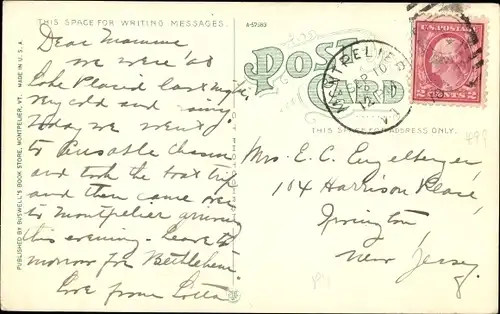 THIS SPACE FOR WRITING MESSAGES.
A-57582
Dear Mamma
we were at
Lake Placid last night
very cold and
Today we went
to Ausable Chasm
and took the boat trip
and then came over
to Montpelier arriving
this evening - Leave to
morrow for Bethlehem
Love from Lotta
PUBLISHED BY BUSWELL'S BOOK STORE, MONTPELIER, VT.
MADE IN U.S.A.
POST CARD
THIS SPACE FOR ADDRESS ONLY.
MONTPELIER
10
12
VT.
2 CENTS 2
499
Mrs. E. C. Engelberger,
104 Harrison Place,
Irvington,
New Jersey.